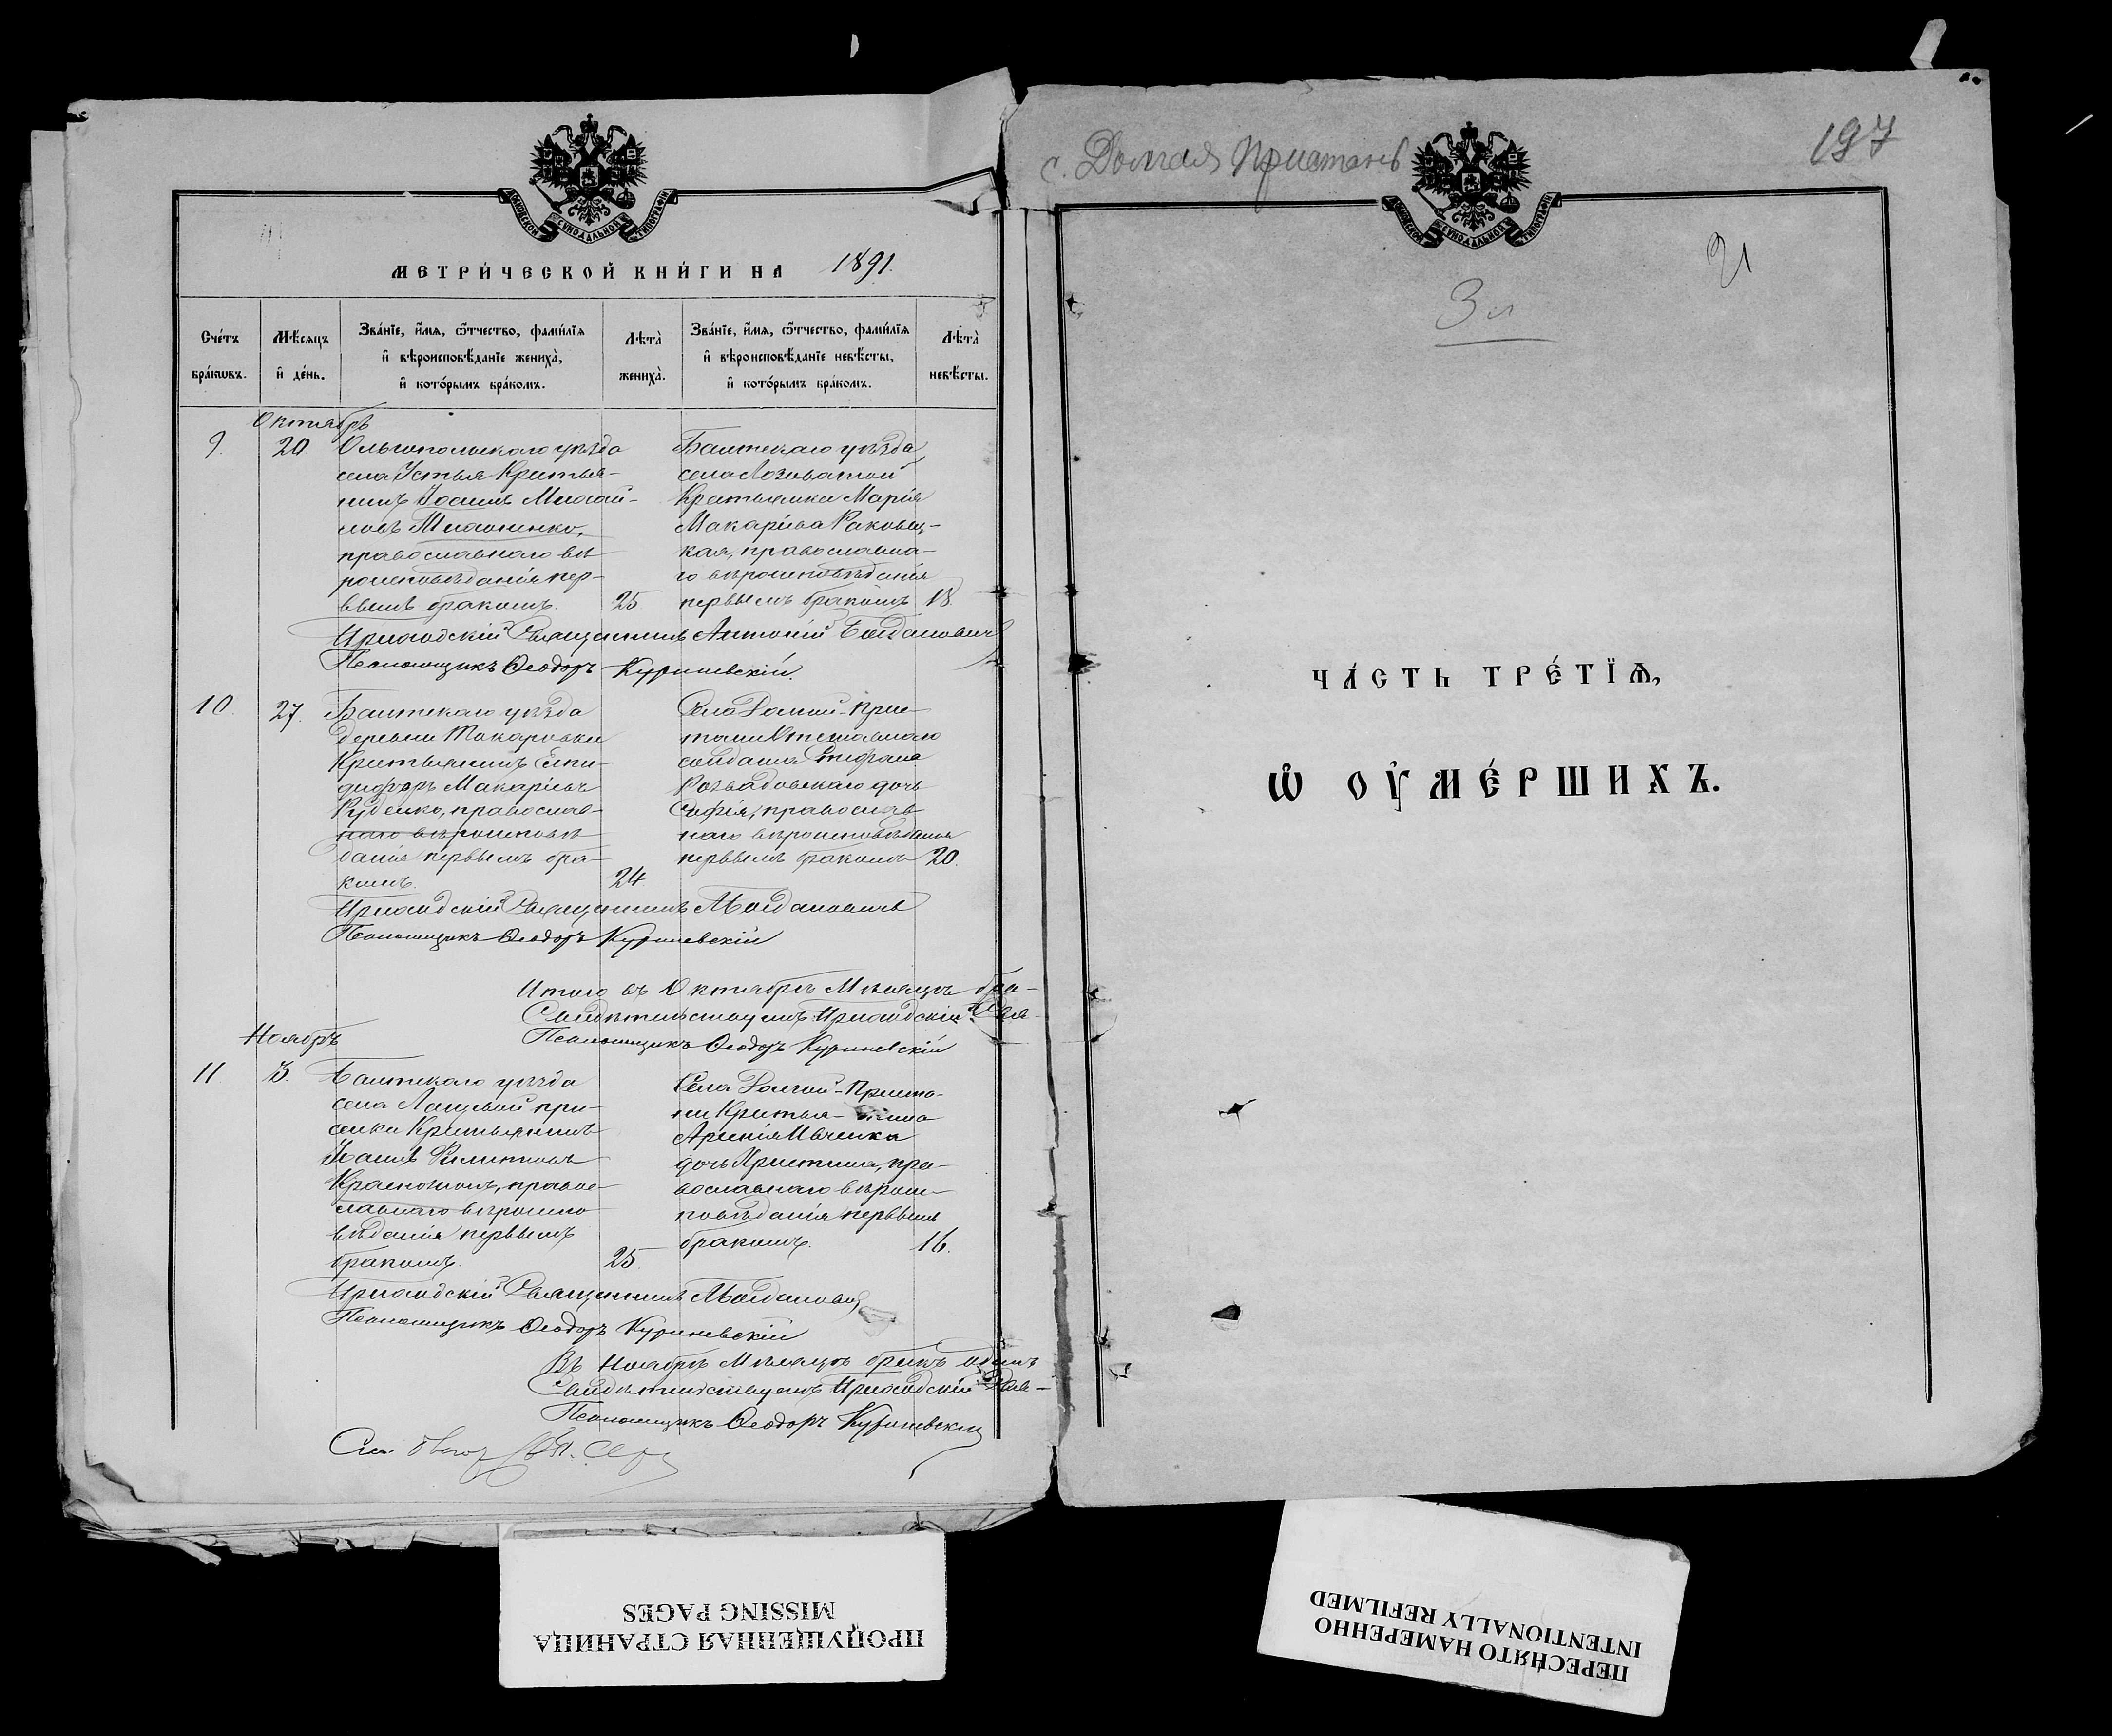 МОСКОВСКОЙ СѴНОДАЛЬНОЙ ТИПОГРАФІИ
МЕТРИ́ЧЕСКОЙ КНИ́ГИ НА 1891.
Сче́тъ бра́кѡвъ.
Мѣ́сяцъ и҆ де́нь.
Зва́нїе, и҆́мѧ, ѻ҆́тчество, фами́лїѧ
и҆ вѣроисповѣ́данїе женихà,
и҆ кото́рымъ бра́комъ.
Лѣ́та женихà.
Зва́нїе, и҆́мѧ, ѻ҆́тчество, фами́лїѧ
и҆ вѣроисповѣ́данїе невѣ́сты,
и҆ кото́рымъ бра́комъ.
Лѣ́та невѣ́сты.
Октябрь
9. 20.
Ольгопольскаго уѣзда
села Устья Крестья-
нинъ Іоаннъ Михай-
ловъ
православнаго вѣ
роисповѣданія пер-
вымъ бракомъ. 25
Балтскаго уѣзда
села Лозоватой
Крестьянка Марія
Макаріева Раковец-
кая, православна-
го вѣроисповѣданія
первымъ бракомъ 18.
Приходскій Священникъ Антоній Богдановичъ
Псаломщикъ Ѳеодоръ Куриневскій.
10. 27.
Балтскаго уѣзда
деревни Токаровки
Крестьянинъ Епи-
дифоръ Макаріевъ
Руденко, православ-
наго вѣроисповѣ
данія первымъ бра-
комъ. 24
Села Долгой-При-
стани Отставнаго
солдата Стефана
Розвадовскаго дочь
Софія, православ
наго вѣроисповѣданія
первымъ бракомъ 20.
Приходскій Священникъ А Богдановичъ
Псаломщикъ Ѳеодоръ Куриневскій
Итого въ Октябрѣ Мѣсяцѣ бра-
Свидѣтельствуемъ: Приходскій Свя-
Псаломщикъ Ѳеодоръ Куриневскій
Ноябрь
11 3.
Балтскаго уѣзда
села
Крестьянинъ
Іоаннъ Филиповъ
православ-
славнаго вѣроиспо
вѣданія первымъ
бракомъ. 25.
Села Долгой-Приста-
ни Крестья-нина
Арсенія Ивченка
дочь Христина, пра-
вославнаго вѣроис-
повѣданія первымъ
бракомъ. 16.
Приходскій Священникъ А Богдановичъ
Псаломщикъ Ѳеодоръ Куриневскій
Въ Ноябрѣ Мѣсяцѣ бракъ одинъ
Свидѣтельствуемъ Приходскій Свя-
Псаломщикъ Ѳеодоръ Куриневскій
с. Долгая Пристань
197
МОСКОВСКОЙ СѴНОДАЛЬНОЙ ТИПОГРАФІИ
21
3 л
ЧА́СТЬ ТРЕ́ТЇѦ,
Ѡ҆ ОУ҆МЕ́РШИХЪ.
ПРОПУЩЕННАЯ СТРАНИЦА
MISSING PAGES
ПЕРЕСНЯТО НАМЕРЕННО
INTENTIONALLY REFILMED